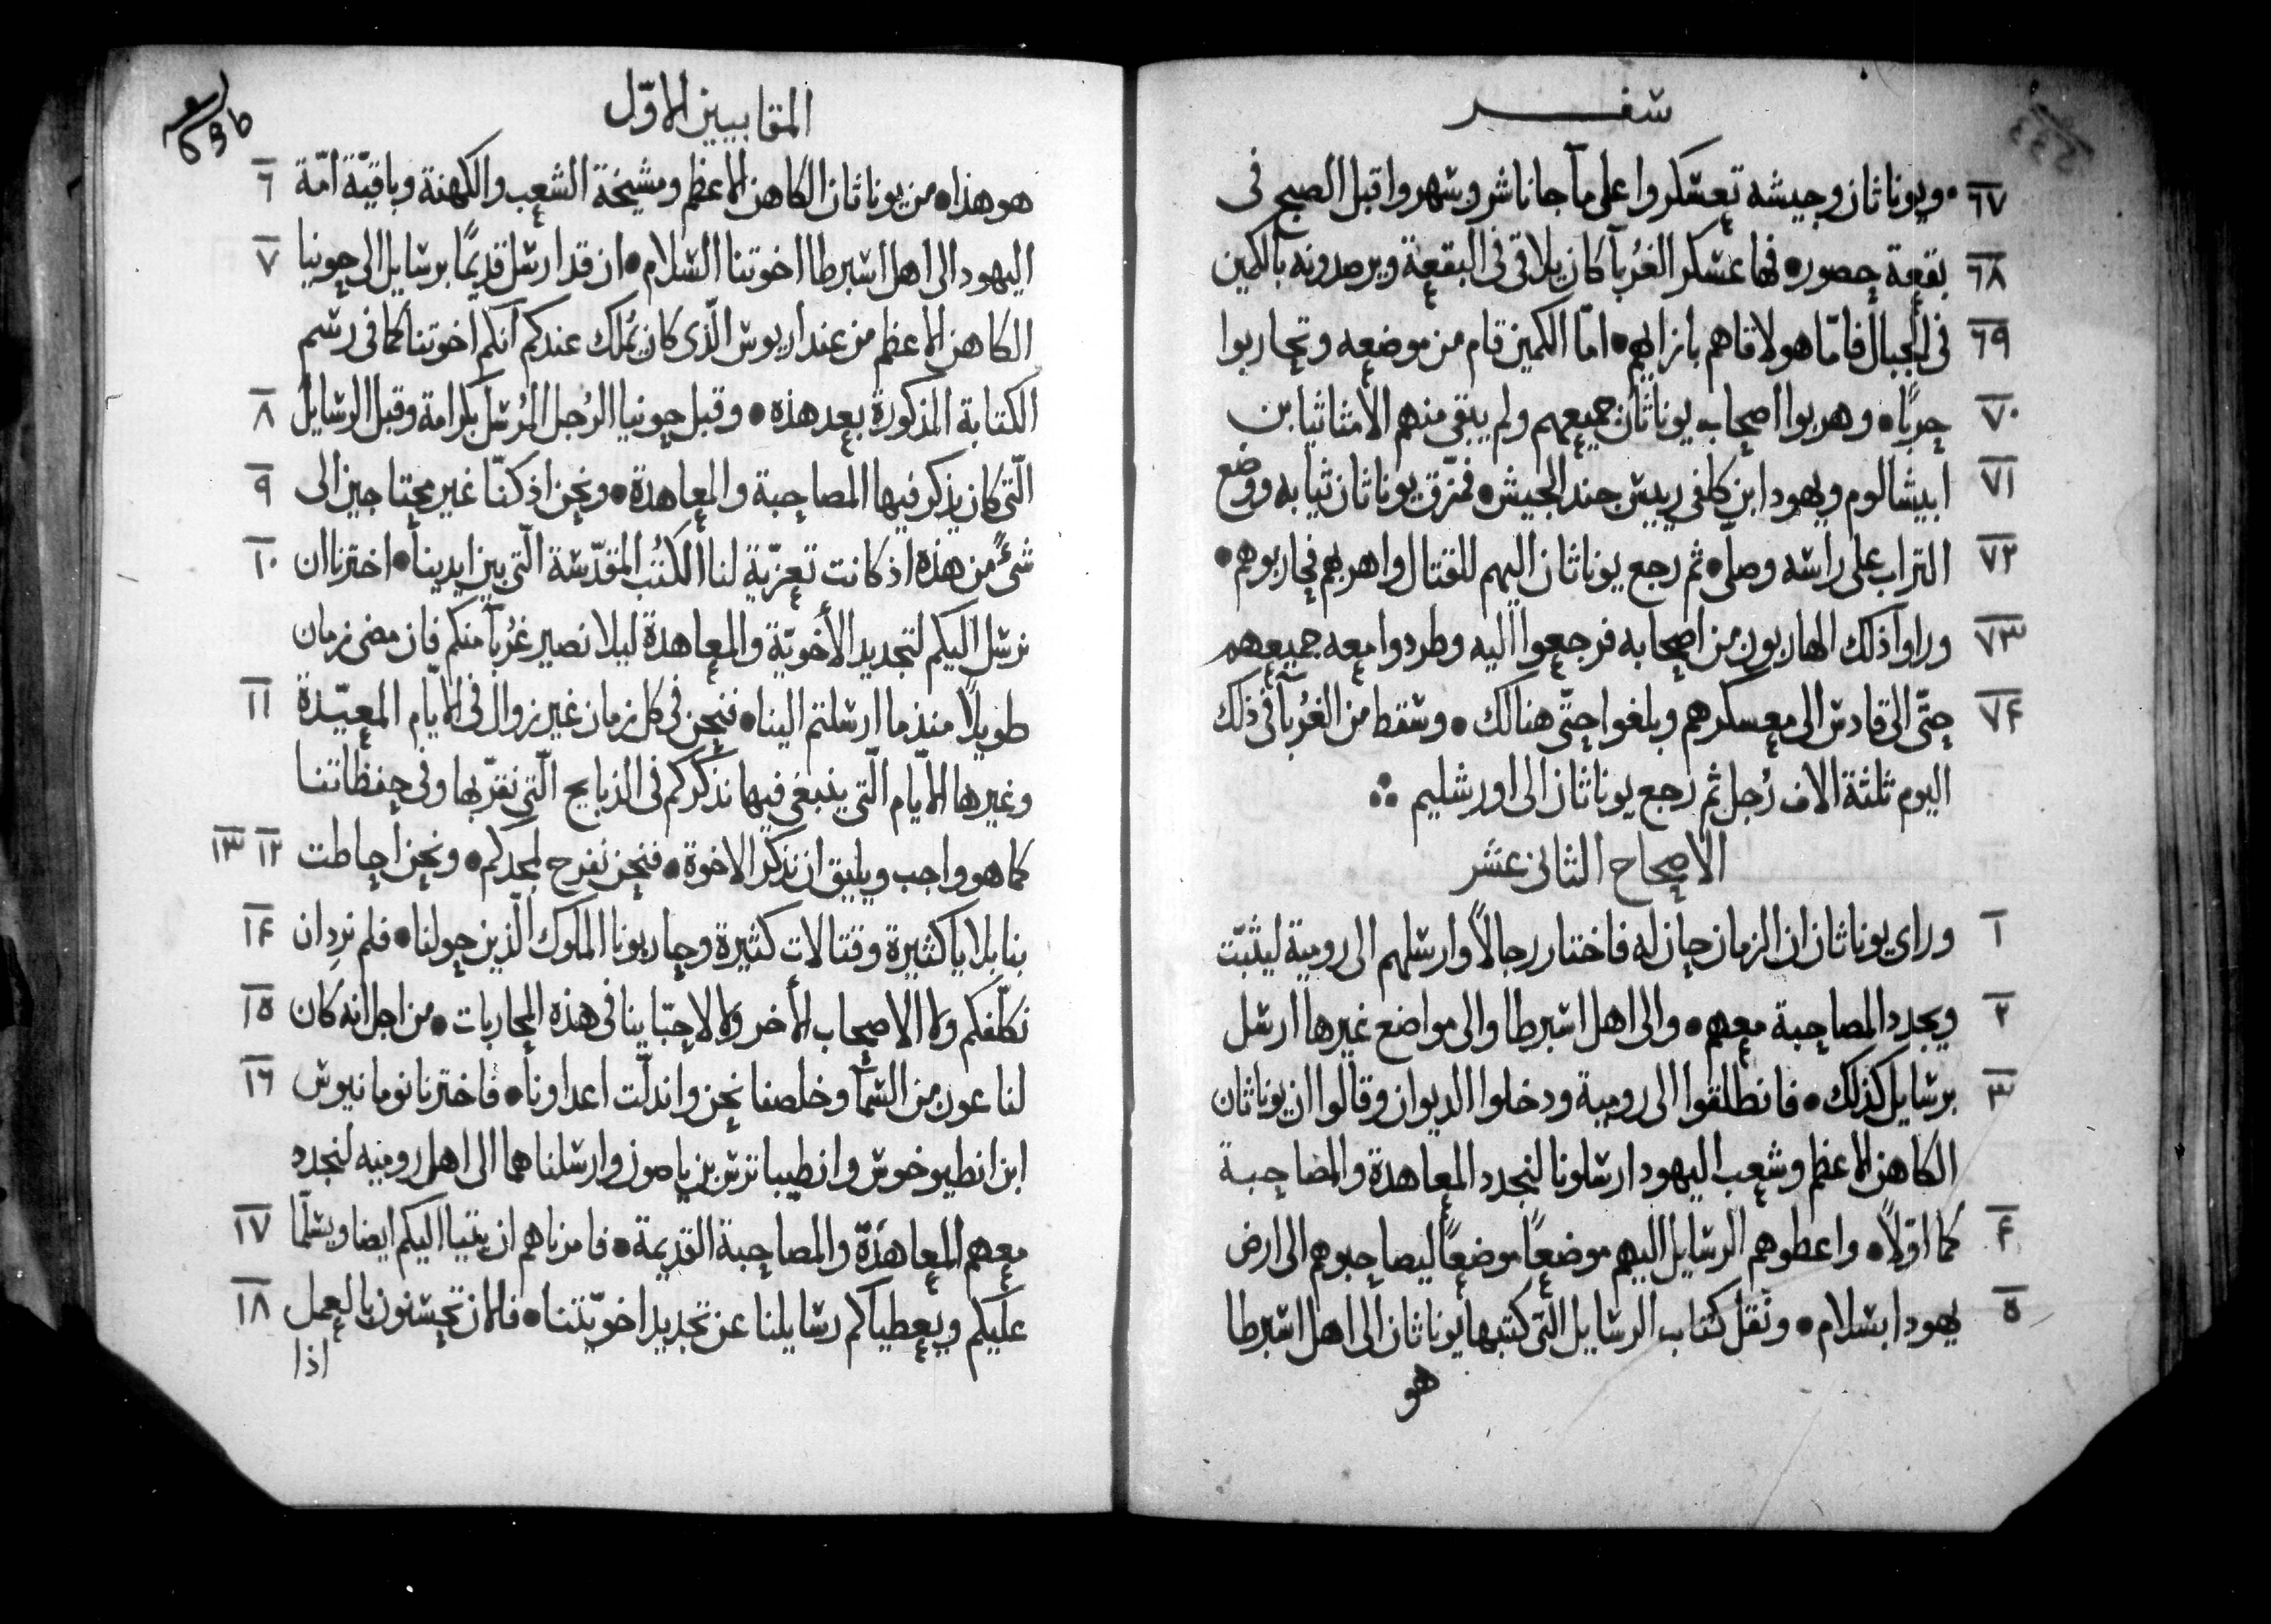 سفر
٦٧ ويوناثان وجيشه تعسكروا على مآ جاناشر وسهروا قبل الصبح فى
٦٨ بقعة حصور • فها عسكر الغُربآ كان يلاقى فى البقعة ويرصدونه بالكمين
٦٩ فى الجبال فامّا هو لاقاهم بازايهم • امّا الكمين قام من موضعه وتحاربوا
٧٠ حربًا • وهربوا اصحاب يوناثان جميعهم ولم يبقى منهم الا مثاثيا بن
٧١ ابيشالوم ويهودا بن كلفى رييس جند الجيش • فمزّق يوناثان ثيابه ووضع
٧٢ التراب على راسه وصلّى • ثم رجع يوناثان اليهم للقتال واهربهم فحاربوهم •
٧٣ وراوا ذلك الهاربون من اصحابه فرجعوا اليه وطردوا معه جميعهم
٧٤ حتّى الى قادس الى معسكرهم وبلغوا حتّى هنالك • وسقط من الغُربآ فى ذلك
اليوم ثلثة الاف رُجل ثم رجع يوناثان الى اورشليم
الاصحاح الثانى عشر
١ وراى يوناثان ان الزمان حان له فاختار رجالاً وارسلهم الى رومية ليثبّت
٢ ويجدد المصاحبة معهم • والى اهل اسبرطا والى مواضع غيرها ارسل
٣ برسايل كذلك • فانطلقوا الى رومية ودخلوا الديوان وقالوا ان يوناثان
الكاهن الاعظم وشعب اليهود ارسلونا لنجدد المعاهدة والمصاحبة
٤ كما اوّلاً • واعطوهم الرسايل اليهم موضعًا موضعًا ليصاحبوهم الى ارض
٥ يهودا بسلام • ونقل كتاب الرسايل الّتى كتبها يوناثان الى اهل اسبرطا
هو
المقابيين الاوّل
٦ هو هذا • من يوناثان الكاهن الاعظم ومشيخة الشعب والكهنة وباقيّة امّة
٧ اليهود الى اهل اسبرطا اخوتنا السلام • ان قد ارسل قديمًا برسايل الى حونيا
الكاهن الاعظم من عند اريوس الّذى كان يملك عندكم انكم اخوتنا كما فى رسم
٨ الكتابة المذكورة بعد هذه • وقبل حونيا الرُجل المُرسَل بكرامة وقبل الرسايل
٩ الّتى كان يذكر فيها المصاحبة والمعاهدة • ونحن اذ كنّا غير محتاجين الى
١٠ شىءً من هذه اذ كانت تعزّية لنا الكُتب المقدّسة الّتى بين ايدينا • اخترنا ان
نرسل اليكم لتجديد الأخويّة والمعاهدة ليلا نصير غرُبآ منكم فان مضى زمان
١١ طويلاً منذ ما ارسلتم الينا • فنحن فى كل زمان غير زوال فى الايّام المعيّدة
وغيرها الايّام الّتى ينبغى فيها نذكّركم فى الذبايح الّتى نقرّبها وفى حفظاتنا
١٢ ١٣ كما هو واجب ويليق ان نذكر الاخوة • فنحن نفرح لمجدكم • ونحن احاطت
١٤ بنا بلايا كثيرة وقتالات كثيرة وحاربونا الملوك الّذين حولنا • فلم نرِد ان
١٥ نكلّفكم ولا الاصحاب الأخر ولا لاحبّاينا فى هذه المحاربات • من اجل انه كان
١٦ لنا عون من السمآ وخلصنا نحن واندلّت اعداونا • فاخترنا نومانيوس
ابن انطيوخوس وانطيباترس بن ياصون وارسلناهما الى اهل روميه لنجدد
١٧ معهم المعاهدّة والمصاحبة القديمة • فامرناهم ان يتيا اليكم ايضا ويسلّما
١٨ عليكم ويعطياكم رسايلنا عن تجديد اخويّتنا • فالان تحسنون بالعمل
اذا